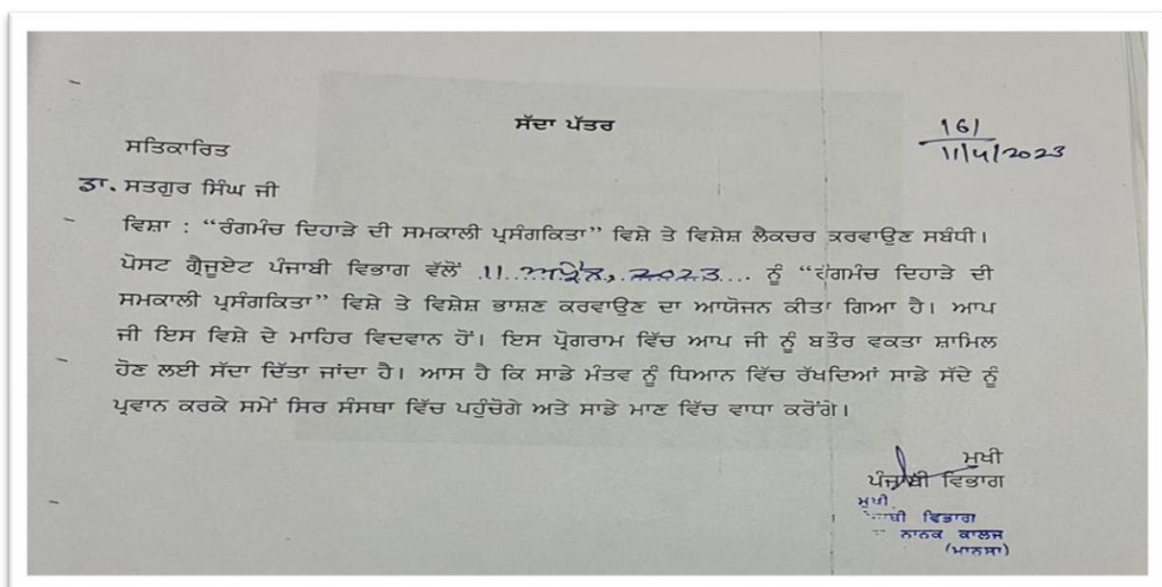 ਸੱਦਾ ਪੱਤਰ
161
11/4/2023
ਸਤਿਕਾਰਿਤ
ਡਾ. ਸਤਗੁਰ ਸਿੰਘ ਜੀ
ਵਿਸ਼ਾ : “ਰੰਗਮੰਚ ਦਿਹਾੜੇ ਦੀ ਸਮਕਾਲੀ ਪ੍ਰਸੰਗਕਿਤਾ” ਵਿਸ਼ੇ ਤੇ ਵਿਸ਼ੇਸ਼ ਲੈਕਚਰ ਕਰਵਾਉਣ ਸਬੰਧੀ।
ਪੋਸਟ ਗ੍ਰੈਜੂਏਟ ਪੰਜਾਬੀ ਵਿਭਾਗ ਵੱਲੋਂ .11..ਅਪ੍ਰੈਲ, 2023.... ਨੂੰ “ਰੰਗਮੰਚ ਦਿਹਾੜੇ ਦੀ
ਸਮਕਾਲੀ ਪ੍ਰਸੰਗਕਿਤਾ” ਵਿਸ਼ੇ ਤੇ ਵਿਸ਼ੇਸ਼ ਭਾਸ਼ਣ ਕਰਵਾਉਣ ਦਾ ਆਯੋਜਨ ਕੀਤਾ ਗਿਆ ਹੈ। ਆਪ
ਜੀ ਇਸ ਵਿਸ਼ੇ ਦੇ ਮਾਹਿਰ ਵਿਦਵਾਨ ਹੋਂ। ਇਸ ਪ੍ਰੋਗਰਾਮ ਵਿੱਚ ਆਪ ਜੀ ਨੂੰ ਬਤੌਰ ਵਕਤਾ ਸ਼ਾਮਿਲ
ਹੋਣ ਲਈ ਸੱਦਾ ਦਿੱਤਾ ਜਾਂਦਾ ਹੈ। ਆਸ ਹੈ ਕਿ ਸਾਡੇ ਮੰਤਵ ਨੂੰ ਧਿਆਨ ਵਿੱਚ ਰੱਖਦਿਆਂ ਸਾਡੇ ਸੱਦੇ ਨੂੰ
ਪ੍ਰਵਾਨ ਕਰਕੇ ਸਮੇਂ ਸਿਰ ਸੰਸਥਾ ਵਿੱਚ ਪਹੁੰਚੋਗੇ ਅਤੇ ਸਾਡੇ ਮਾਣ ਵਿੱਚ ਵਾਧਾ ਕਰੋਂਗੇ।
ਮੁਖੀ
ਪੰਜਾਬੀ ਵਿਭਾਗ
ਮੁਖੀ
ਵਿਭਾਗ
ਨਾਨਕ ਕਾਲਜ
(ਮਾਨਸਾ)